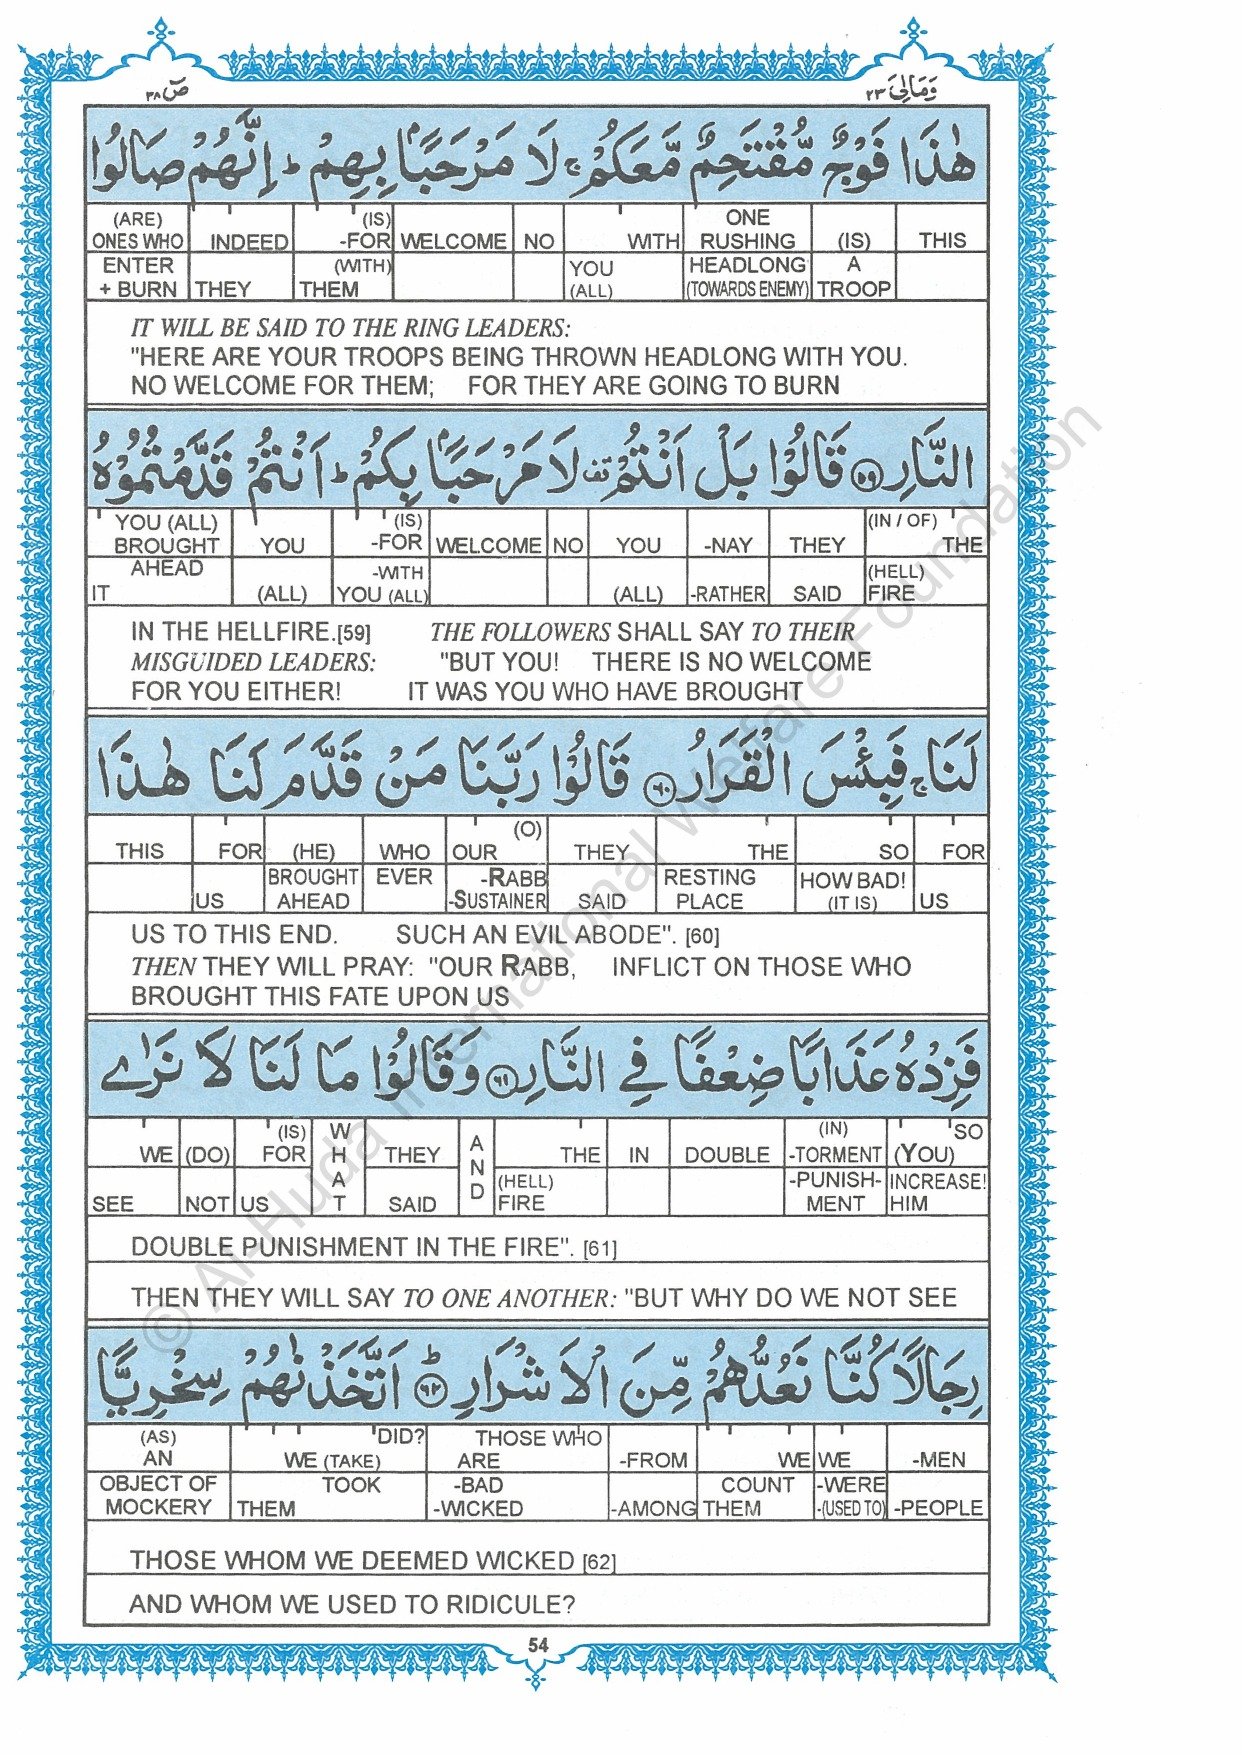 صٓ ٣٨ وَمَالِیَ ٢٣
هٰذَا فَوْجٌ مُّقْتَحِمٌ مَّعَكُمْ ۚ لَا مَرْحَبًاۢ بِهِمْ ؕ اِنَّهُمْ صَالُوا
(ARE) (IS) ONE
ONES WHO INDEED -FOR WELCOME NO WITH RUSHING (IS) THIS
ENTER (WITH) YOU HEADLONG A
+ BURN THEY THEM (ALL) (TOWARDS ENEMY) TROOP
IT WILL BE SAID TO THE RING LEADERS:
"HERE ARE YOUR TROOPS BEING THROWN HEADLONG WITH YOU.
NO WELCOME FOR THEM; FOR THEY ARE GOING TO BURN
النَّارِ ﴿٥٩﴾ قَالُوْا بَلْ اَنْتُمْ قف لَا مَرْحَبًاۢ بِكُمْ ؕ اَنْتُمْ قَدَّمْتُمُوْهُ
YOU (ALL) (IS) (IN / OF)
BROUGHT YOU -FOR WELCOME NO YOU -NAY THEY THE
AHEAD -WITH (HELL)
IT (ALL) YOU (ALL) (ALL) -RATHER SAID FIRE
IN THE HELLFIRE.[59] THE FOLLOWERS SHALL SAY TO THEIR
MISGUIDED LEADERS: "BUT YOU! THERE IS NO WELCOME
FOR YOU EITHER! IT WAS YOU WHO HAVE BROUGHT
لَنَا ۚ فَبِئْسَ الْقَرَارُ ﴿٦٠﴾ قَالُوْا رَبَّنَا مَنْ قَدَّمَ لَنَا هٰذَا
(O)
THIS FOR (HE) WHO OUR THEY THE SO FOR
BROUGHT EVER -RABB RESTING HOW BAD!
US AHEAD -SUSTAINER SAID PLACE (IT IS) US
US TO THIS END. SUCH AN EVIL ABODE". [60]
THEN THEY WILL PRAY: "OUR RABB, INFLICT ON THOSE WHO
BROUGHT THIS FATE UPON US
فَزِدْهُ عَذَابًا ضِعْفًا فِي النَّارِ ﴿٦١﴾ وَقَالُوْا مَا لَنَا لَا نَرٰى
(IS) WHAT AND (IN) SO
WE (DO) FOR THEY THE IN DOUBLE -TORMENT (YOU)
(HELL) -PUNISH- INCREASE!
SEE NOT US SAID FIRE MENT HIM
DOUBLE PUNISHMENT IN THE FIRE". [61]
THEN THEY WILL SAY TO ONE ANOTHER: "BUT WHY DO WE NOT SEE
رِجَالًا كُنَّا نَعُدُّهُمْ مِّنَ الْاَشْرَارِ ﴿٦٢﴾ؕ اَتَّخَذْنٰهُمْ سِخْرِيًّا
(AS) DID? THOSE WHO
AN WE (TAKE) ARE -FROM WE WE -MEN
OBJECT OF TOOK -BAD COUNT -WERE
MOCKERY THEM -WICKED -AMONG THEM -(USED TO) -PEOPLE
THOSE WHOM WE DEEMED WICKED [62]
AND WHOM WE USED TO RIDICULE?
54
© Al-Huda International Welfare Foundation